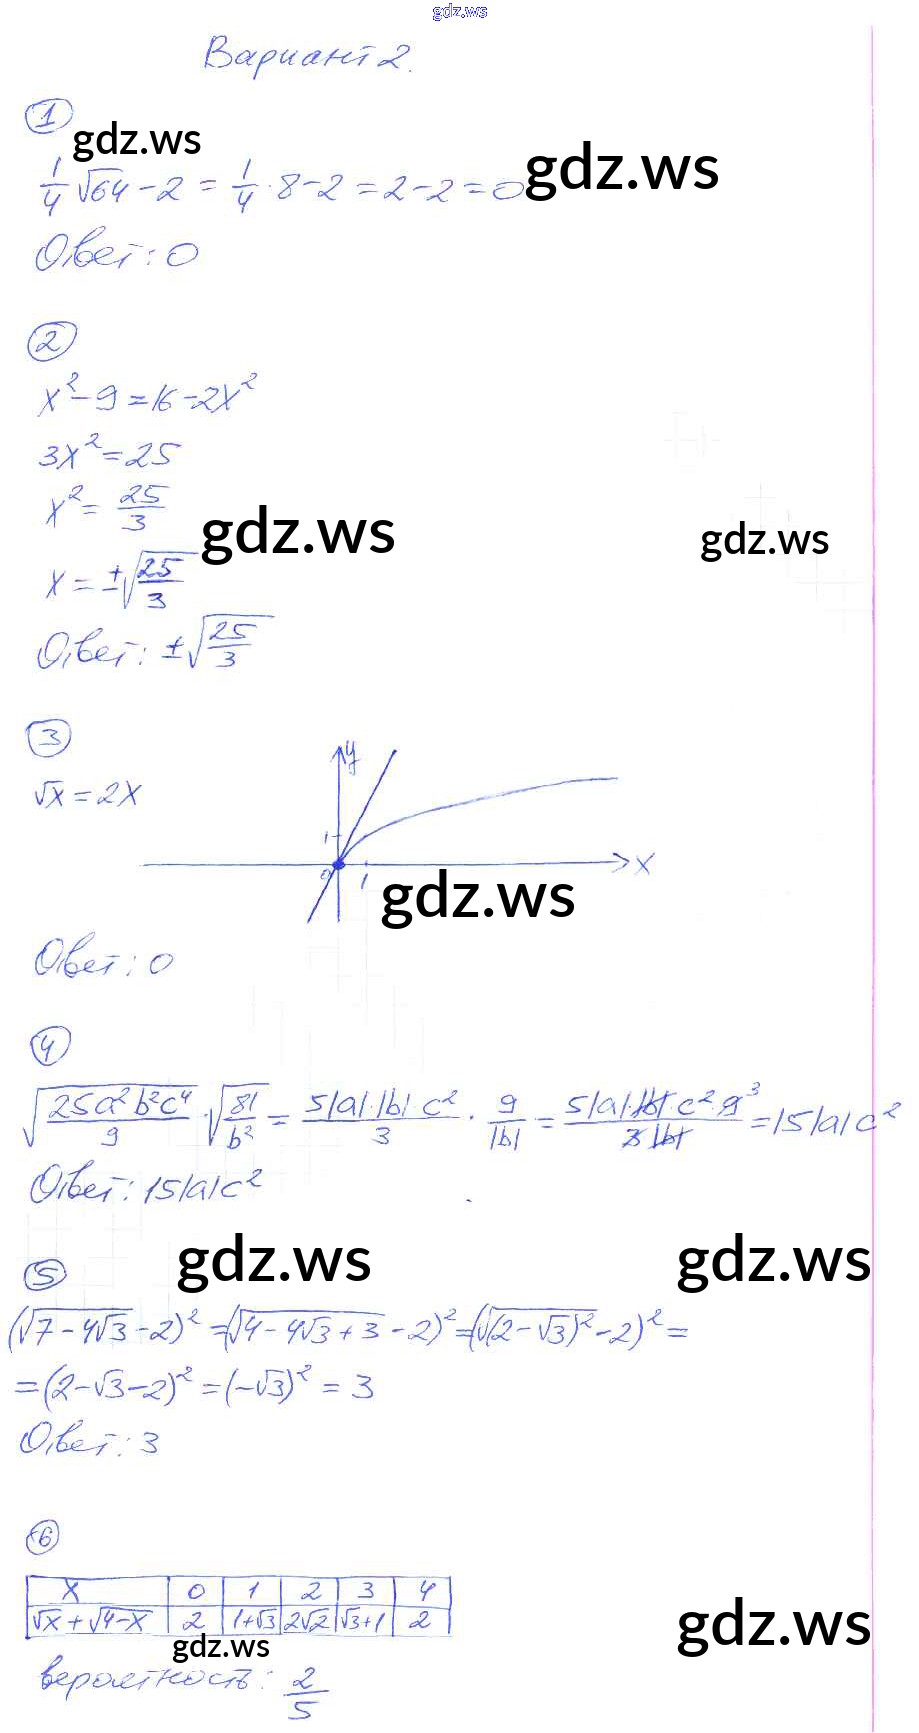 gdz.ws
Вариант 2.
1
gdz.ws
gdz.ws
1/4 √64 - 2 = 1/4 · 8 - 2 = 2 - 2 = 0
Ответ: 0
2
x² - 9 = 16 - 2x²
3x² = 25
x² = 25/3
gdz.ws
gdz.ws
x = ±√(25/3)
Ответ: ±√(25/3)
3
√x = 2x
y
1
0 1 x
gdz.ws
Ответ: 0
4
√(25a²b²c⁴/9) · √(81/b²) = 5|a|·|b|·c²/3 · 9/|b| = 5|a|·|b|·c²·9³/3|b| = 15|a|c²
Ответ: 15|a|c²
gdz.ws
gdz.ws
5
(√(7 - 4√3) - 2)² = (√(4 - 4√3 + 3) - 2)² = (√((2 - √3)²) - 2)² =
= (2 - √3 - 2)² = (-√3)² = 3
Ответ: 3
6
x 0 1 2 3 4
√x + √(4-x) 2 1+√3 2√2 √3+1 2
gdz.ws
gdz.ws
вероятность: 2/5